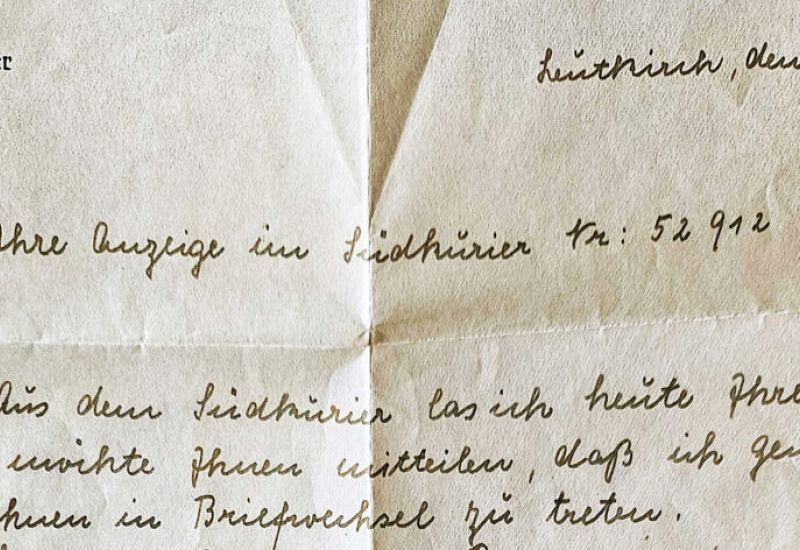 er
Leutkirch, den
Ihre Anzeige im Südkurier Nr: 52 912
Aus dem Südkurier las ich heute Ihre
möchte Ihnen mitteilen, daß ich gen
hnen in Briefwechsel zu treten.